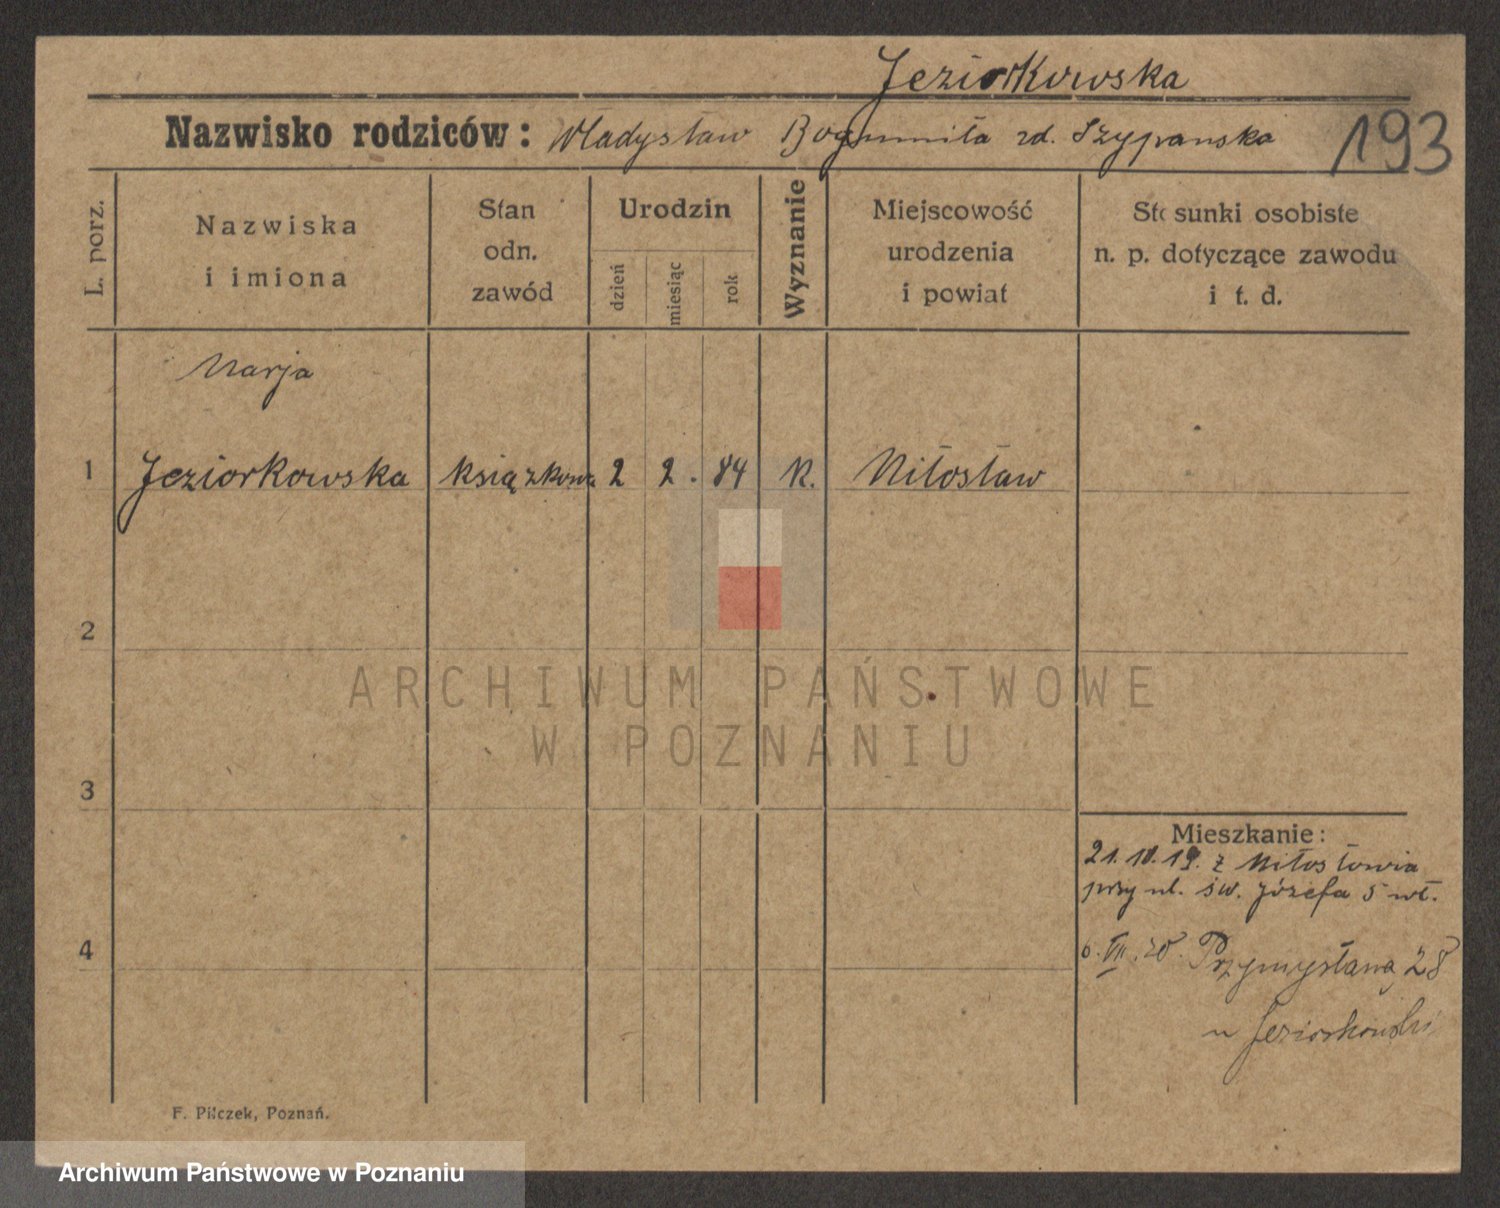 Jeziorkowska
Nazwisko rodziców: Władysław Bogumiła zd. Szypańska 193
L. porz.
Nazwiska
i imiona
Stan
odn.
zawód
Urodzin
dzień
miesiąc
rok
Wyznanie
Miejscowość
urodzenia
i powiat
Stosunki osobiste
n. p. dotyczące zawodu
i t. d.
Marja
1 Jeziorkowska książkowa 2 2. 84 K. Miłosław
2
3
4
Mieszkanie:
21. 19. z Miłosłowia
przy ul. św. Józefa 5 wł.
6. VII. 20. Przymysława 28
u Jeziorkowski
F. Pilczek, Poznań.
ARCHIWUM PAŃSTWOWE
W POZNANIU
Archiwum Państwowe w Poznaniu